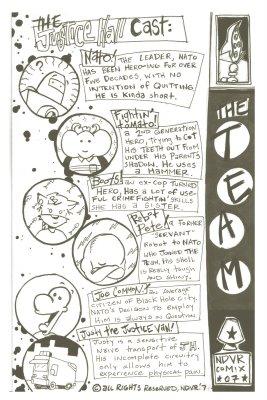 THE Justice Hall Cast:
Nato!
THE LEADER, NATO
HAS BEEN HERO-ING FOR OVER
FIVE DECADES, WITH NO
INTENTION OF QUITTING.
HE IS Kinda SHORT.
Fightin'
tomato!
a 2nd GENERATION
HERO, TRYING TO CUT
HIS TEETH OUT FROM
UNDER HIS PARENT'S
SHADOW. HE USES
A HAMMER.
Boots!
an ex-cop TURNED
HERO, HAS A LOT OF USE-
FUL CRIME FIGHTIN' SKILLS
SHE HAS A SISTER.
Pilot
Pete!
a FORMER
SERVANT
ROBOT TO NATO
WHO JOINED THE
TEAM. HIS SHELL
IS REALLY TOUGH
AND SHINY.
Joe Common!
an AVERAGE
CITIZEN OF BLACK HOLE CITY,
NATO'S DECISION TO EMPLOY
HIM IS ALWAYS IN QUESTION.
Justy the Justice Van!
Justy is a SENSITIVE
NAIVE TRANSPORT OF J.H.
HIS INCOMPLETE CIRCUITRY
ONLY ALLOWS HIM TO
EXPERIENCE PHYSICAL PAIN.
© ALL RIGHTS RESERVED, NDVR '7.
THE
TEAM
NDVR
COMIX
*07*